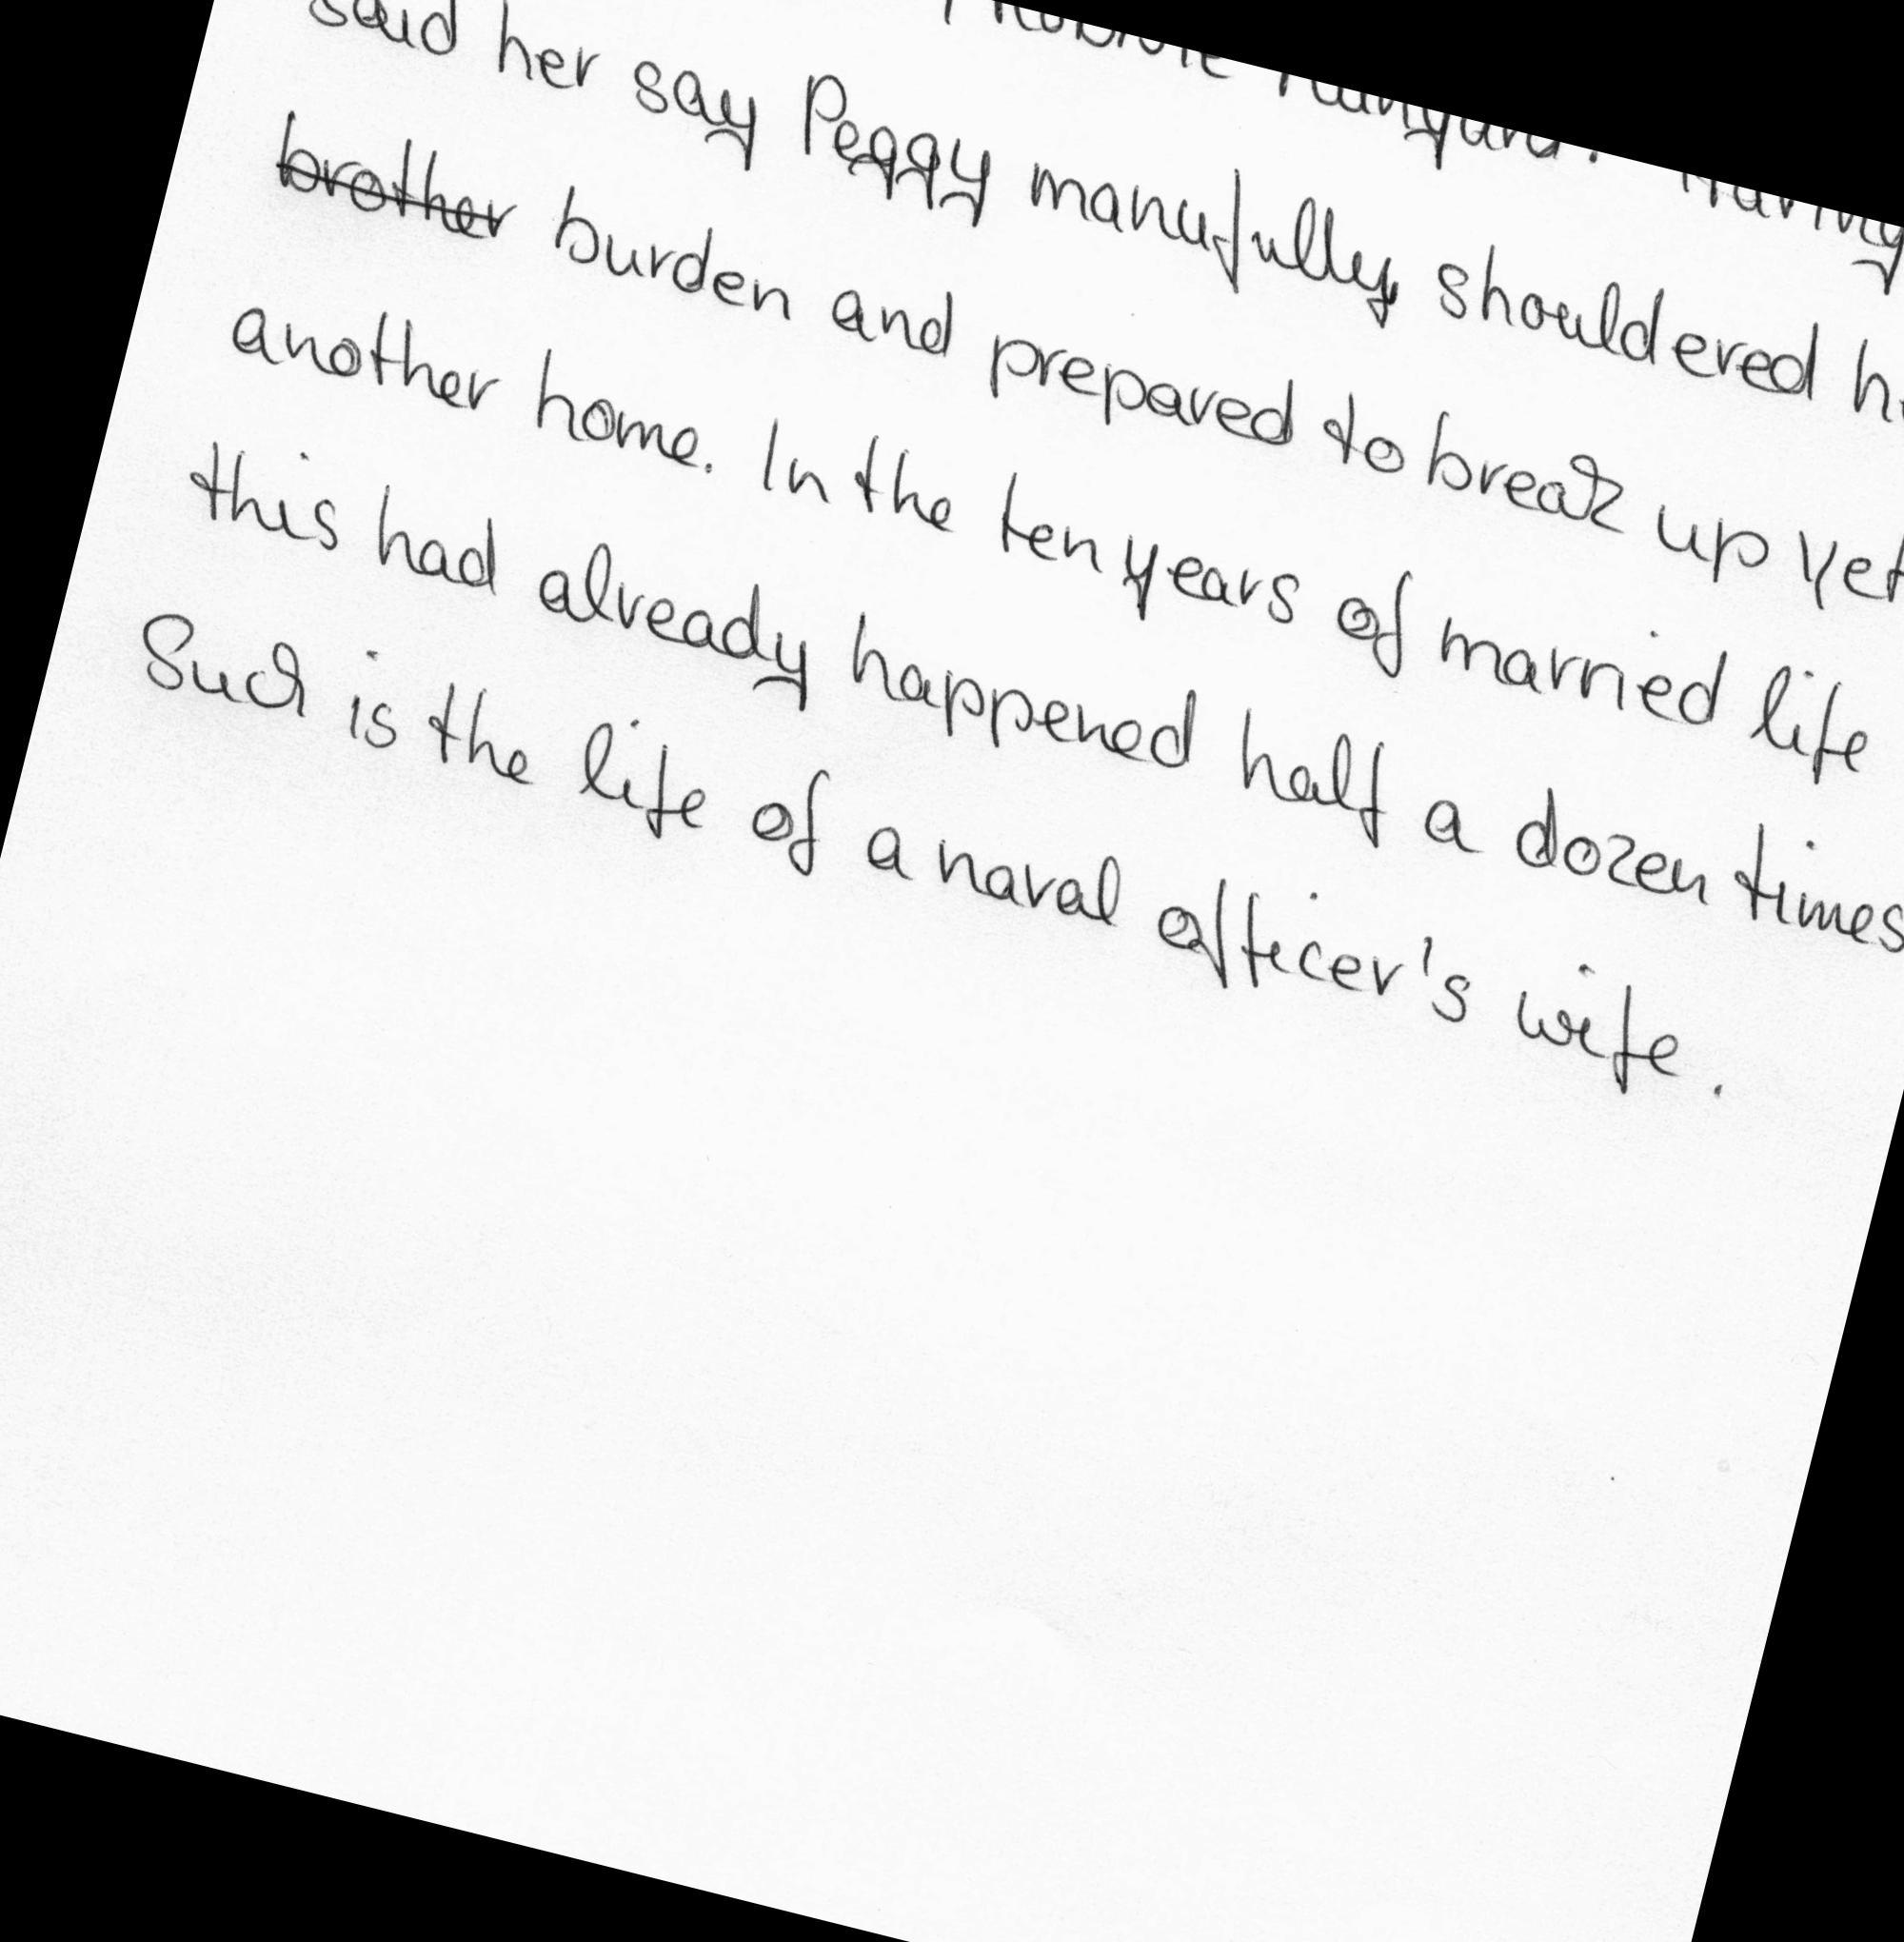 Having
said her say Peggy manufully shouldered
brother burden and prepared to break up yet
another home. In the ten years of married life
this had already happened half a dozen times
Such is the life of a naval officer's wife.